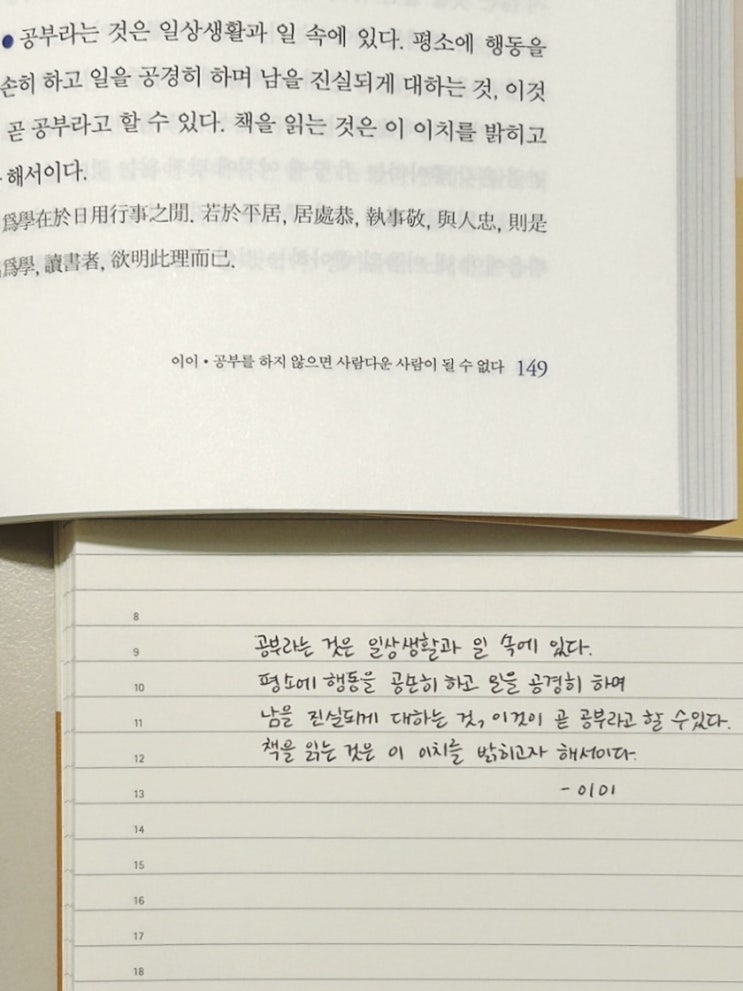 공부라는 것은 일상생활과 일 속에 있다. 평소에 행동을
손히 하고 일을 공경히 하며 남을 진실되게 대하는 것, 이것
곧 공부라고 할 수 있다. 책을 읽는 것은 이 이치를 밝히고
해서이다.
爲學在於日用行事之間. 若於平居, 居處恭, 執事敬, 與人忠, 則是
爲學, 讀書者, 欲明此理而已.
이이 • 공부를 하지 않으면 사람다운 사람이 될 수 없다 149
8
9 공부라는 것은 일상생활과 일 속에 있다.
10 평소에 행동을 공손히 하고 일을 공경히 하며
11 남을 진실되게 대하는 것, 이것이 곧 공부라고 할 수 있다.
12 책을 읽는 것은 이 이치를 밝히고자 해서이다.
13 - 이이
14
15
16
17
18